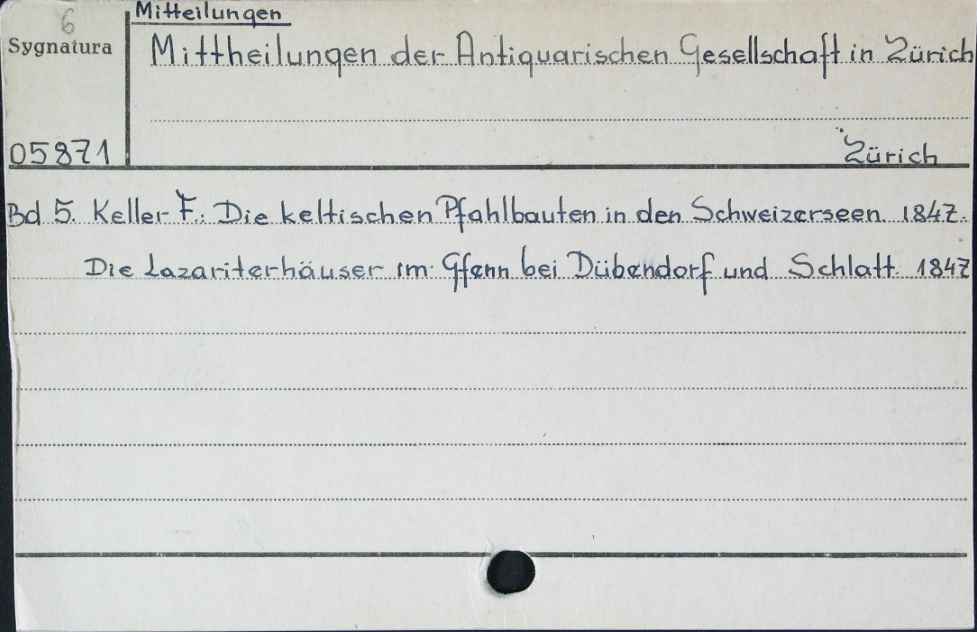 6
Mitteilungen
Sygnatura
Mittheilungen der Antiquarischen Gesellschaft in Zürich
05871
Zürich
Bd 5. Keller F.: Die keltischen Pfahlbauten in den Schweizerseen. 1847.
Die Lazariterhäuser im Gfenn bei Dübendorf und Schlatt. 1847